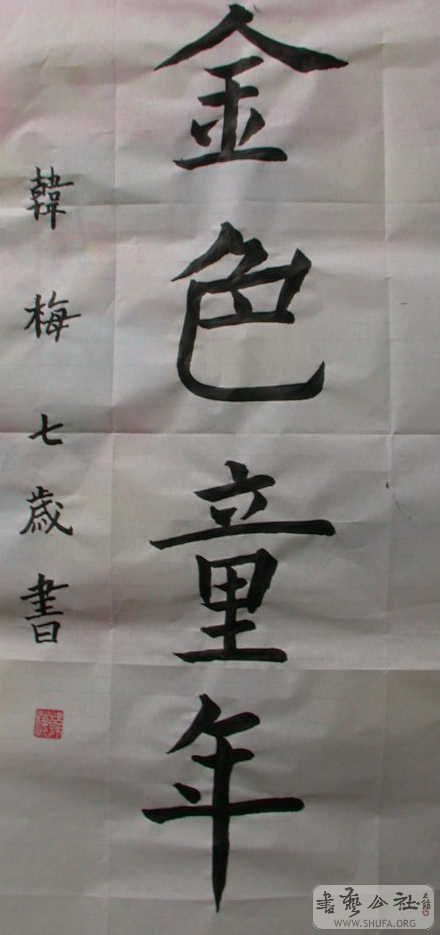 金色童年
韓梅七歲書
書藝公社
WWW.SHUFA.ORG